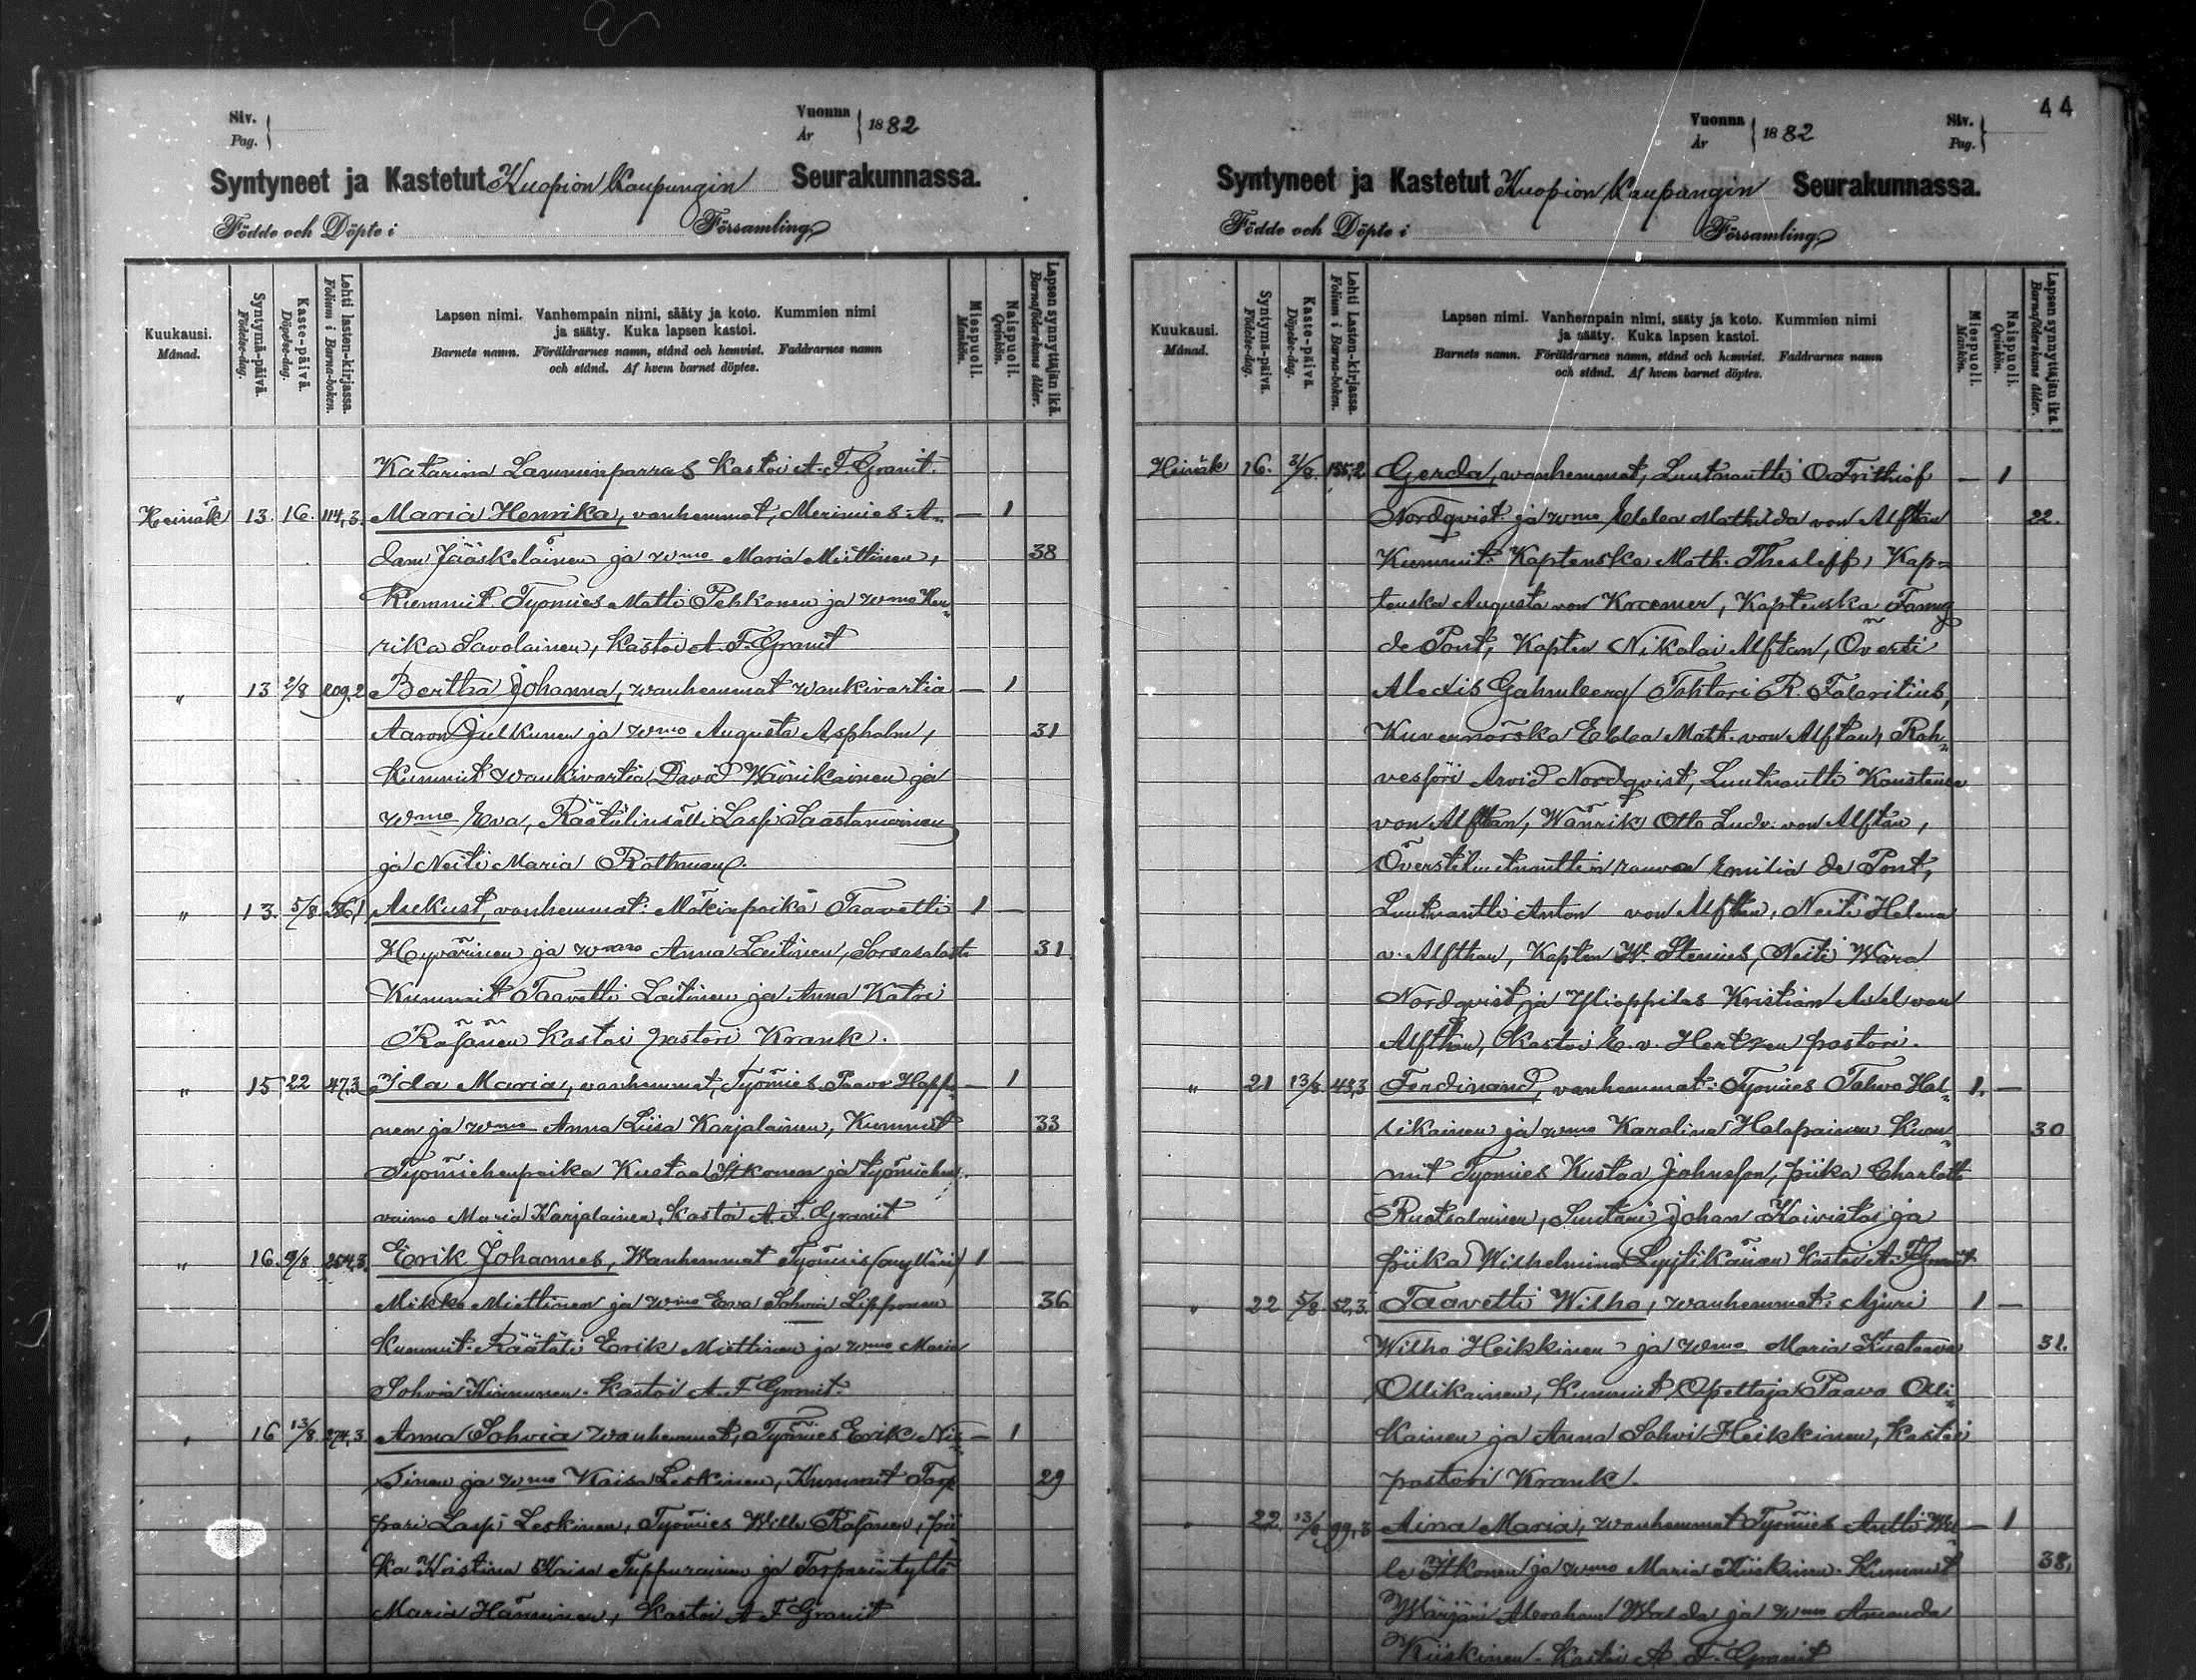 Siv.
Pag.
Vuonna
År
1882
Syntyneet ja Kastetut Kuopion Kaupungin Seurakunnassa.
Födde och Döpte i Församling
Kuukausi.
Månad.
Syntymä-päivä.
Födelse-dag.
Kaste-päivä.
Döpelse-dag.
Lehti lasten-kirjassa.
Folium i Barna-boken.
Lapsen nimi. Vanhempain nimi, sääty ja koto. Kummien nimi
ja sääty. Kuka lapsen kastoi.
Barnets namn. Föräldrarnes namn, stånd och hemvist. Faddrarnes namn
och stånd. Af hvem barnet döptes.
Miespuoli.
Mankön.
Naispuoli.
Qvinkön.
Lapsen synnyttäjän ikä.
Barnaföderskans ålder.
Katarina Lamminparras Kastoi A. F. Granit.
Heinäk 13. 16. 114,3. Maria Henrika, vanhemmat, Merimies A- — 1
dam Jääskeläinen ja wmo Maria Miettinen, 38
Kummit. Työmies Matti Pehkonen ja wmo Hen-
rika Savolainen, Kastoi A. F. Granit
„ 13 2/8 209,2 Bertha Johanna, wanhemmat wankivartia — 1
Aaron Julkunen ja wmo Augusta Aspholm, 31
Kummit wankivartia David Wäinikainen ja
wmo Eva, Räätälinsälli Lasse Saastamoinen
ja Neiti Maria Rothman.
„ 13. 5/8 Aukust, vanhemmat: Mäkinpoika Taavetti 1 —
Hyvärinen ja wmo Anna Laitinen, Sorsasalosta 31
Kummit Taavetti Laitinen ja Anna Katri
Räsänen Kastoi pastori Krank.
„ 15 22 47,3 Ida Maria, vanhemmat, Työmies Paavo Happo- — 1
nen ja wmo Anna Liisa Karjalainen, Kummit 33
Työmiehenpoika Kustaa Itkonen ja työmiehen
vaimo Maria Karjalainen, Kastoi A. F. Granit
„ 16. 9/8 254,3. Erik Johannes, Wanhemmat Työmies (mylläri) 1 —
Mikko Miettinen ja wmo Eva Sohvia Lipponen 36
Kummit: Räätäli Erik Miettinen ja wmo Maria
Sohvia Kinnunen. Kastoi A. F. Granit.
„ 16 13/8 274,3 Anna Sohvia wanhemmat, Työmies Erik Nis- — 1
sinen ja wmo Kaisa Leskinen, Kummit Torp-
pari Lassi Leskinen, Työmies Wille Räsänen, pii-
ka Kristina Kaisa Tuppurainen ja Torparintyttö
Maria Hänninen, Kastoi A F Granit
44
Vuonna
År
1882
Siv.
Pag.
Syntyneet ja Kastetut Kuopion Kaupungin Seurakunnassa.
Födde och Döpte i Församling
Kuukausi.
Månad.
Syntymä-päivä.
Födelse-dag.
Kaste-päivä.
Döpelse-dag.
Lehti Lasten-kirjassa.
Folium i Barna-boken.
Lapsen nimi. Vanhempain nimi, sääty ja koto. Kummien nimi
ja sääty. Kuka lapsen kastoi.
Barnets namn. Föräldrarnes namn, stånd och hemvist. Faddrarnes namn
och stånd. Af hvem barnet döptes.
Miespuoli.
Mankön.
Naispuoli.
Qvinkön.
Lapsen synnyttäjän ikä.
Barnaföderskans ålder.
Heinäk 16. 135,2 Gerda, wanhemmat, Luutnantti O. Frithiof — 1
Nordqvist ja wmo Ebba Mathilda von Alftan 22.
Kummit: Kaptenska Math. Thesleff, Kap-
tenska Augusta von Kræmer, Kaptenska Fanny
de Pont, Kapten Nikolai Alftan, Översti
Alexis Gahmberg, Tohtori R. Fabritius,
Kuvernörska Ebba Math. von Alftan, Rah-
vesföri Arvid Nordqvist, Luutnantti
von Alftan, Wänrik Otto Ludv. von Alftan,
Överstiluutnanttin rouva Emilia de Pont,
Luutnantti Anton von Alfthan, Neiti Helena
v. Alfthan, Kapten W. Stenius, Neiti Wära
Nordqvist ja Ylioppilas Kristian Axel von
Alfthan, Kastoi E. v. Hertzen pastori.
„ 21 13/8 43,3 Ferdinand, vanhemmat: Työmies Tahvo Hal- 1. —
likainen ja wmo Karolina Halapainen Kum- 30
mit Työmies Kustaa Johnsson, piika Charlotta
Ruotsalainen, Suutari Johan Koivistoi ja
piika Wilhelmina Lyytikäinen Kastoi A. F. Granit
„ 22 5/8 52,3. Taavetti Wilho, wanhemmat: Ajuri 1 —
Wilho Heikkinen ja wmo Maria Kustaava 31.
Ollikainen, Kummit Opettaja Paavo Olli-
kainen ja Anna Sohvi Heikkinen, Kastoi
pastori Krank.
„ 22 13/8 99,3 Aina Maria, wanhemmat Työmies Antti Wil- — 1
le Itkonen ja wmo Maria Kiiskinen. Kummit 38.
Wärjäri Abraham ja wmo Amanda
Kiiskinen. Kastoi A. F. Granit